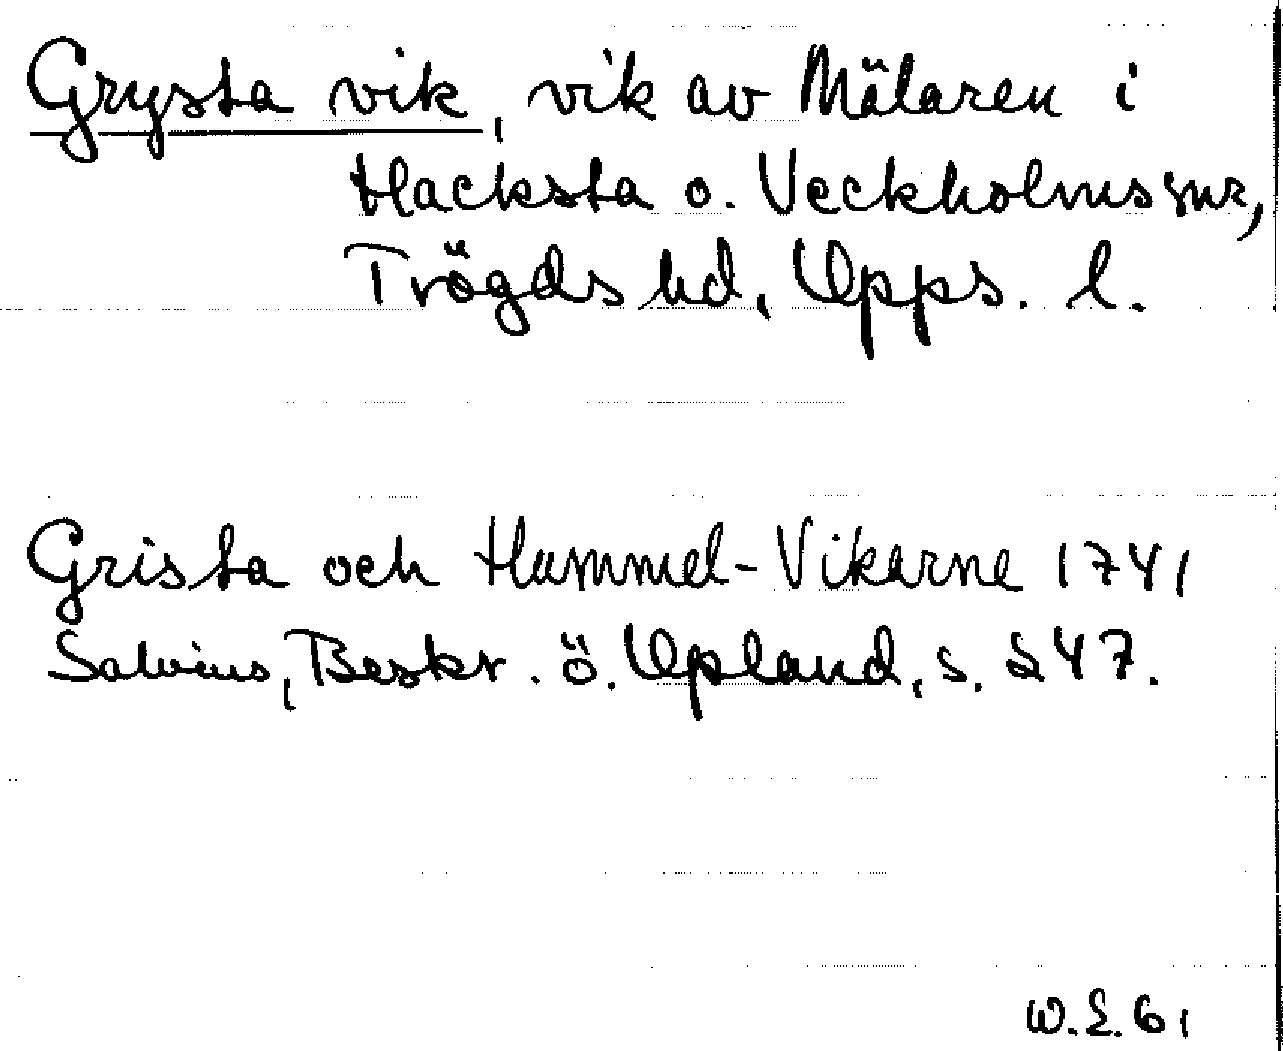 Grysta vik, vik av Mälaren i
Hacksta o. Veckholms snr,
Trögds hd, Upps. l.
Grista och Hummel-Vikarne 1741
Salvius, Beskr. ö. Upland, s. 247.
W.E. 61